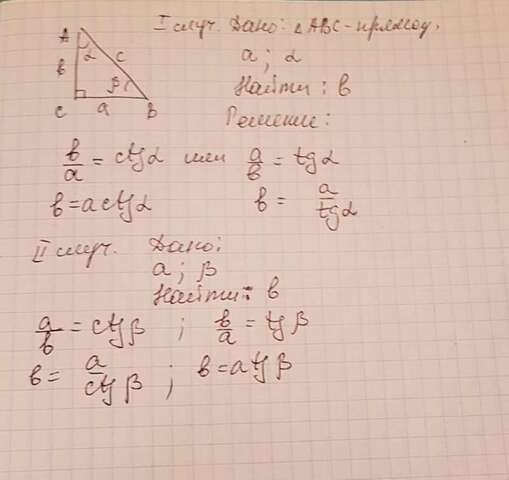 I случ. Дано: △ABC - прямоуг.
a; α
Найти: в
Решение:
A
α
c
в
β
C
a
B
в/a = ctgα или a/в = tgα
в = a ctgα     в = a/tgα
II случ. Дано:
a; β
Найти: в
a/в = ctgβ ; в/a = tgβ
в = a/ctgβ ; в = a tgβ